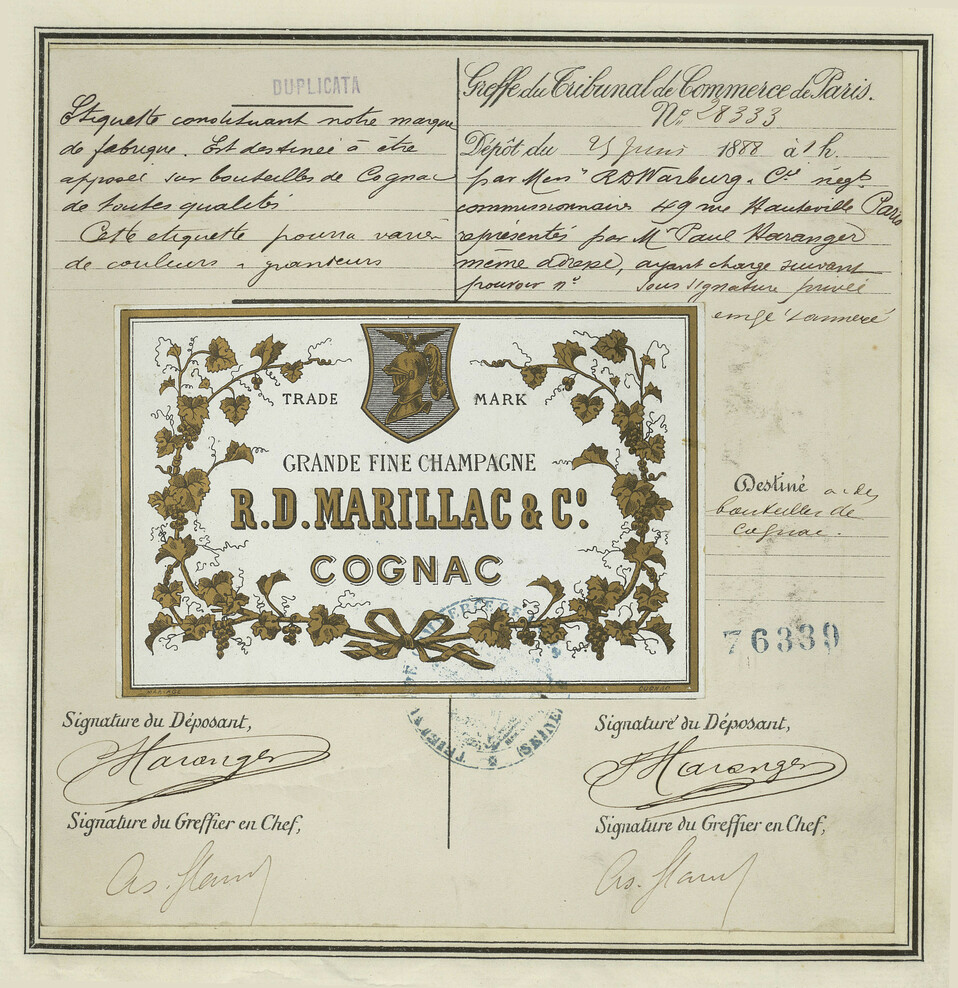 DUPLICATA
Etiquette constituant notre marque
de fabrique. Est destinée à être
apposée sur bouteilles de Cognac
de toutes qualités
Cette etiquette pourra varier
de couleurs
Greffe du Tribunal de Commerce de Paris.
No 28333
Dépôt du 25 Juin 1888 à 1 h.
par Mess RD Warburg & Cie négt
commissionnaires 49 rue Hauteville Paris
représentés par Mr Paul Haranger
même adresse, ayant charge suivant
pouvoir no sous signature privée
TRADE MARK
GRANDE FINE CHAMPAGNE
R.D. MARILLAC & Co.
COGNAC
Destiné à des
bouteilles de
Cognac.
76339
Signature du Déposant,
Haranger
Signature du Greffier en Chef,
Signature du Déposant,
Haranger
Signature du Greffier en Chef,